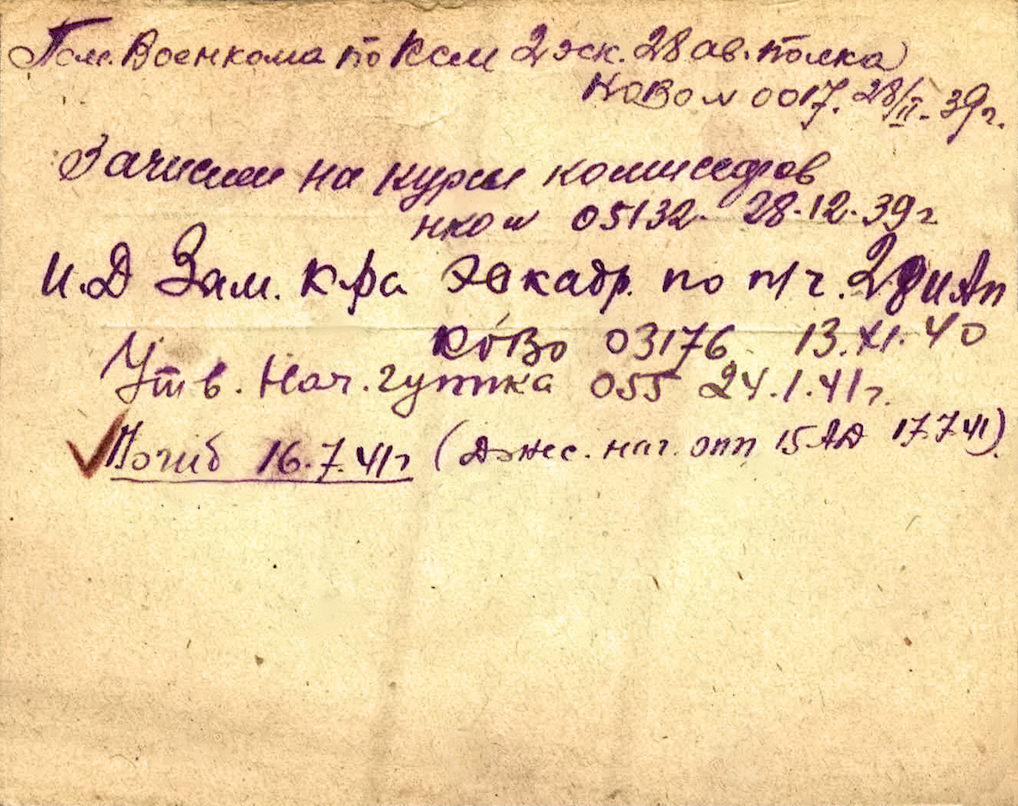 Пом. Военкома по Ксм 2 эск. 28 ав. полка
КоВо № 0017. 28/II. 39г.
Зачислен на курсы комиссаров
нко № 05132. 28.12.39г
И.Д Зам. К-ра Эскадр. по п/ч. 28 иАп
КОВО 03176 13.XI.40
Утв. Нач. гуппка 055 24.1.41г.
Погиб 16.7.41г (Дон. нач. опп 15 АД 17.7.41).